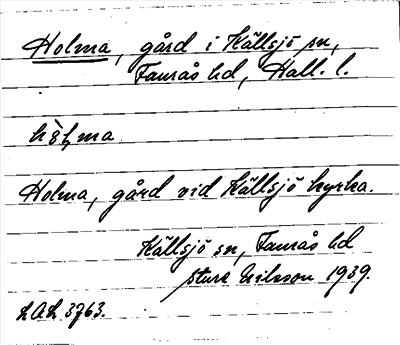 Holma, gård i Källsjö sn,
Faurås hd, Hall. l.
Holma, gård vid Källsjö kyrka.
Källsjö sn, Faurås hd
Sture Nilsson 1939.
LAL 3763.